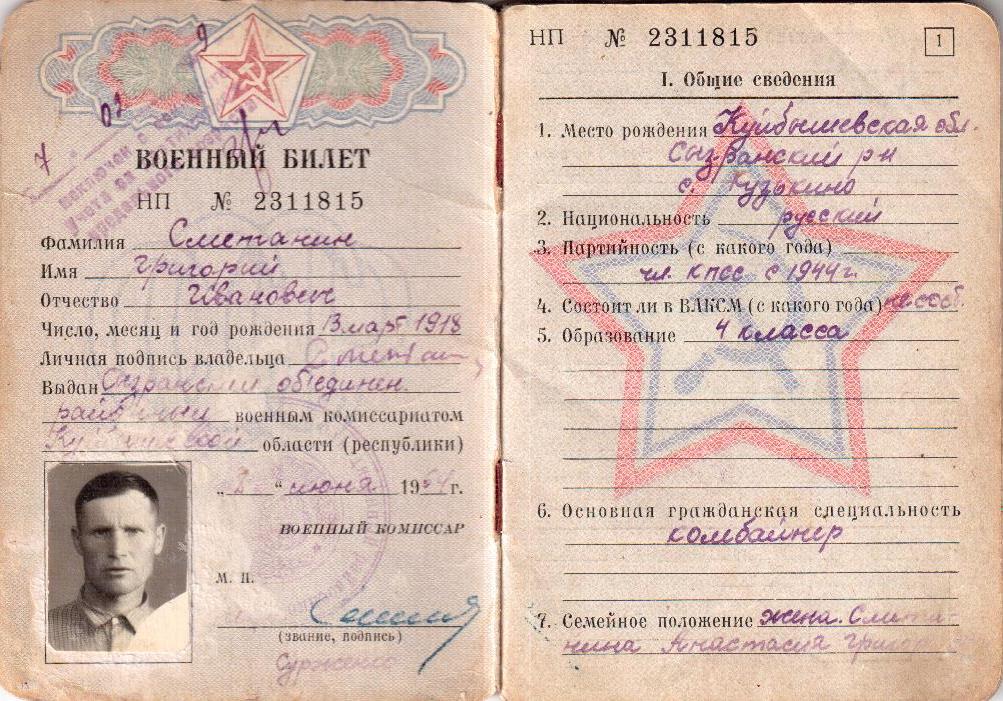 ВОЕННЫЙ БИЛЕТ
НП № 2311815
Фамилия Сметанин
Имя Григорий
Отчество Иванович
Число, месяц и год рождения 13 март 1918
Личная подпись владельца
Выдан Сызранским объединен.
районным военным комиссариатом
Куйбышевской области (республики)
" " июня 19 г.
ВОЕННЫЙ КОМИССАР
М. П.
(звание, подпись)
Сурженко
НП № 2311815
1
I. Общие сведения
1. Место рождения Куйбышевская обл.
Сызранский р-н
с. Кузькино
2. Национальность русский
3. Партийность (с какого года)
чл. КПСС с 1944 г.
4. Состоит ли в ВЛКСМ (с какого года)
5. Образование 4 класса
6. Основная гражданская специальность
комбайнер
7. Семейное положение жена. Смета-
нина Анастасия